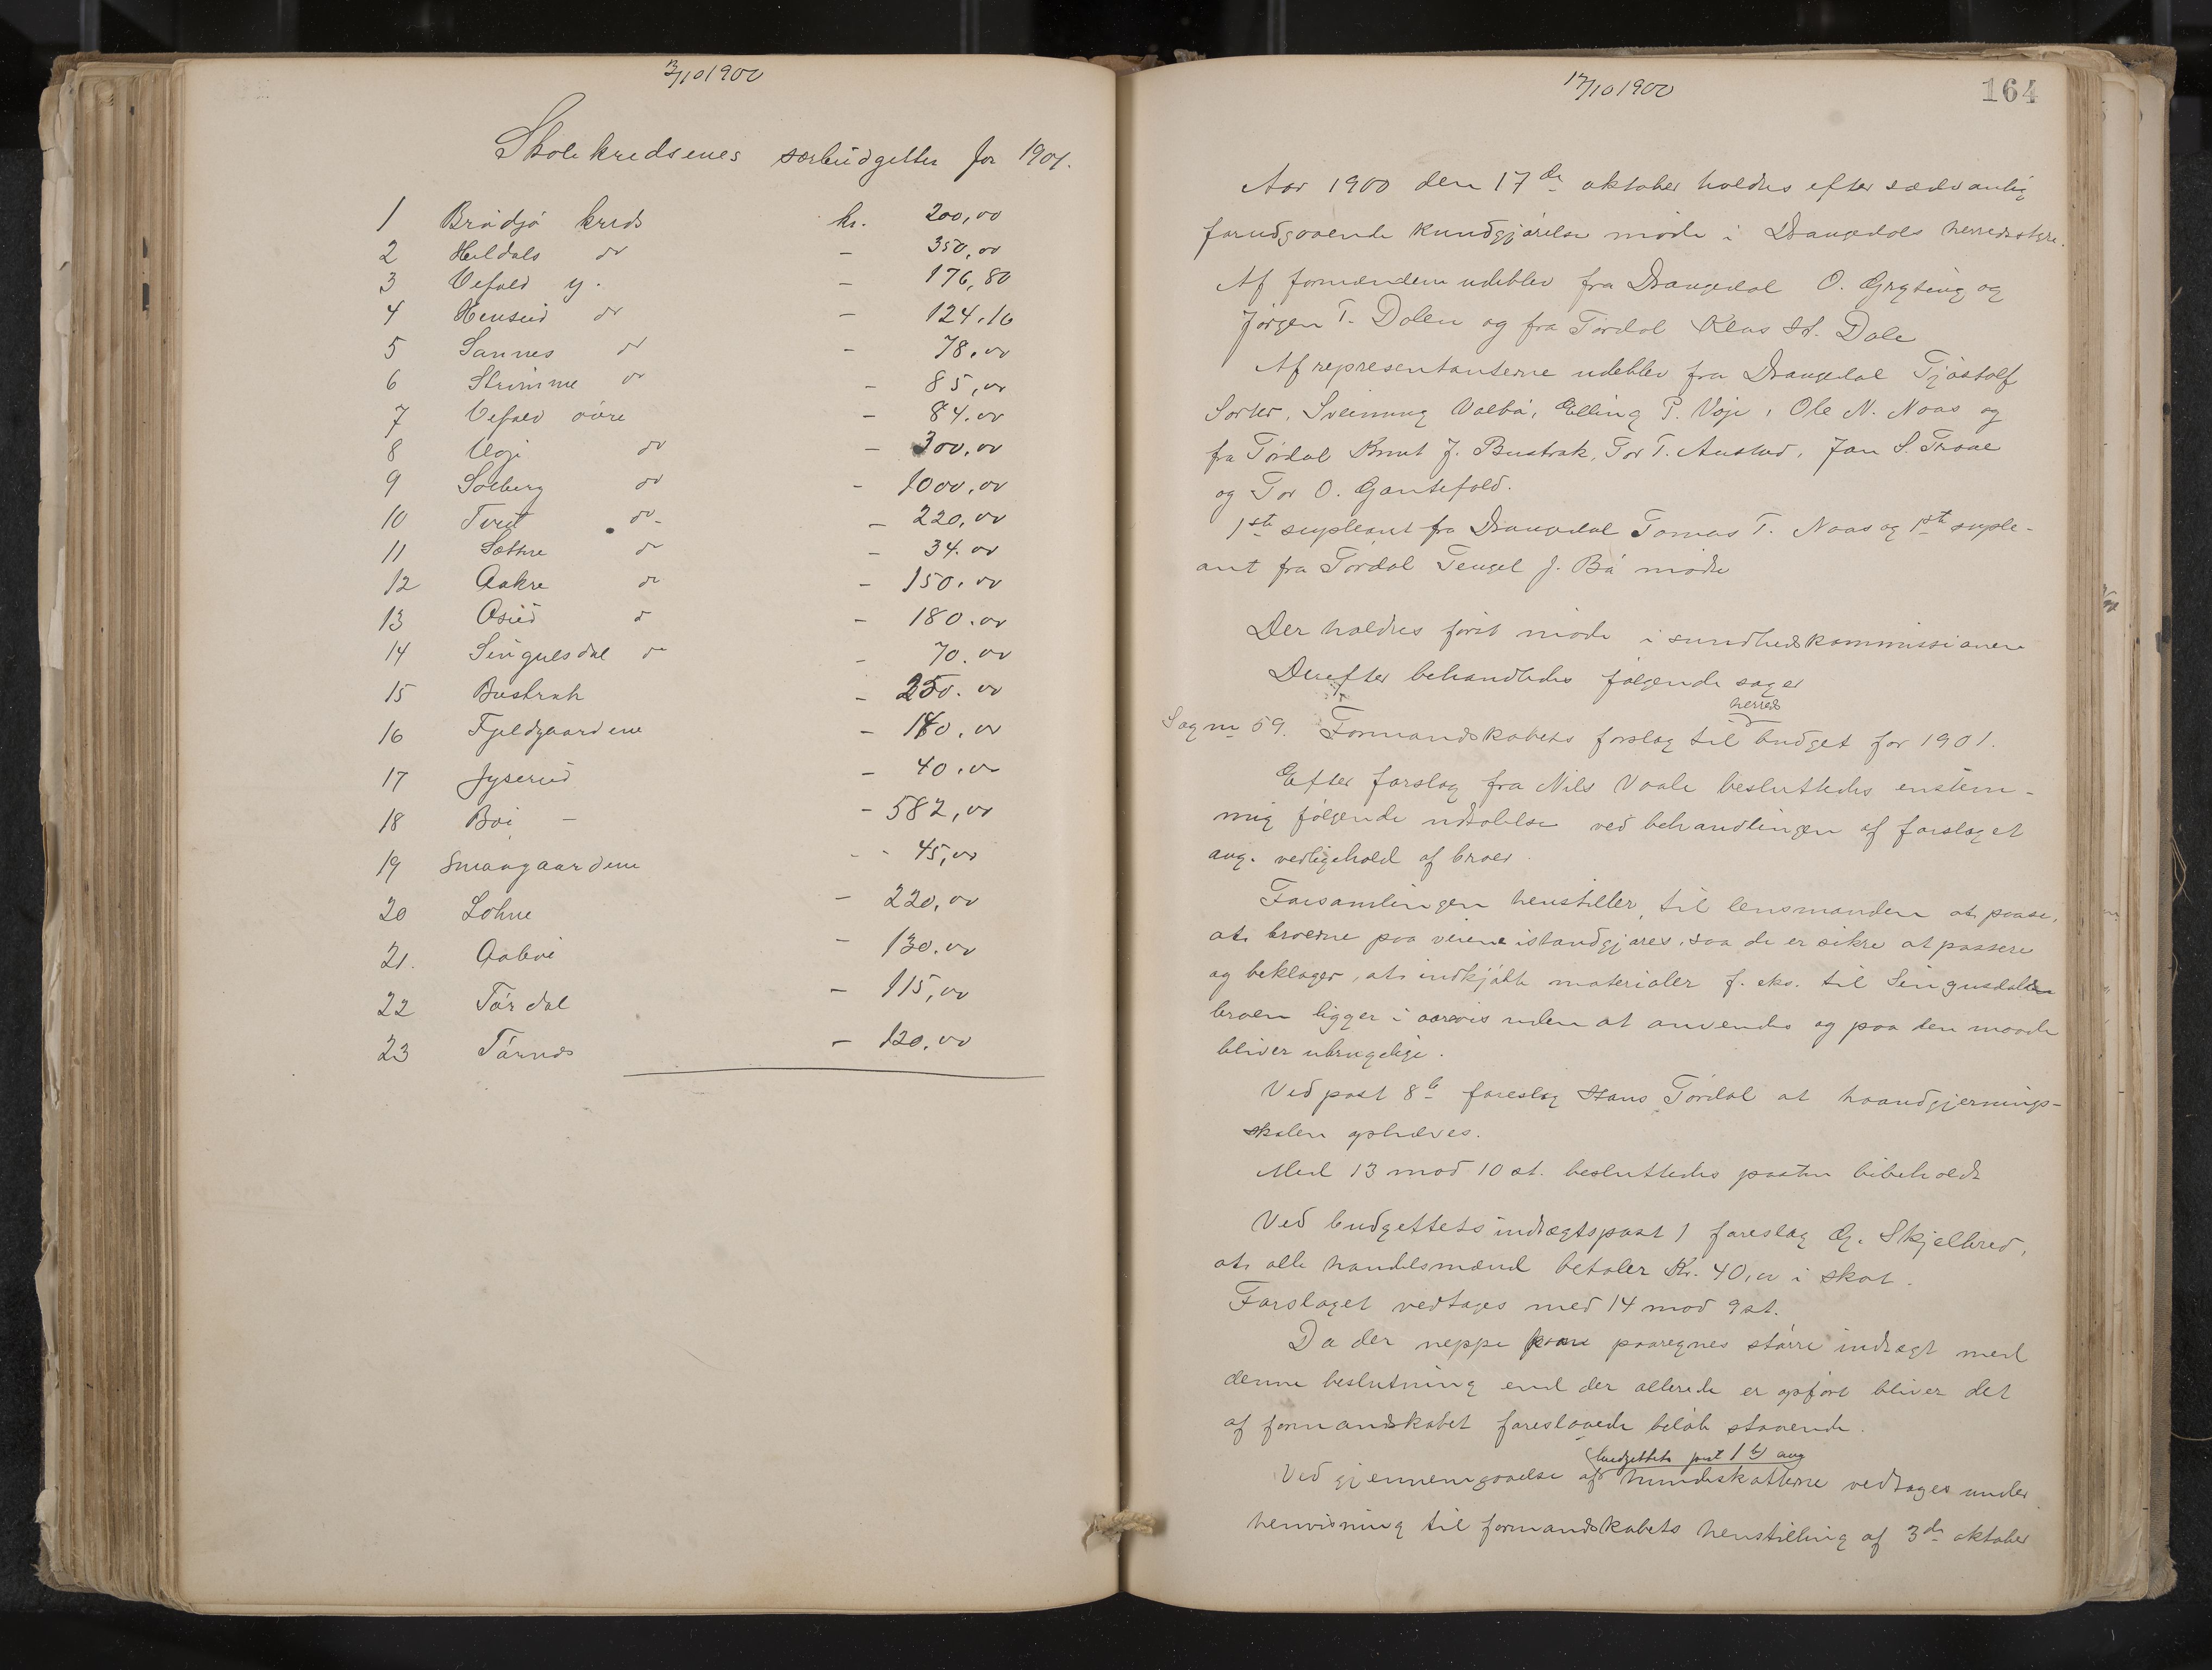 3/10 1900
Skolekredsenes særbudgetter for 1901.
1 Brødsjø kreds kr. 200,00
2 Heldals do - 350,00
3 Vefald y. - 176,80
4 Henseid do - 124.16
5 Sannes do - 78.00
6 Strømme do - 85,00
7 Vefald øvre - 84.00
8 Voje do - 300,00
9 Solberg do - 1000,00
10 Tveit do - 220,00
11 Sættre do - 34.00
12 Aakre do - 150.00
13 Oseid do - 180.00
14 Singulsdal do - 70.00
15 Bustrak - 250.00
16 Fjeldgaardene - 180.00
17 Gyserud - 40.00
18 Bøi - - 582,00
19 Smaagaardene - 45,00
20 Lohne - 220,00
21. Aabøi - 130.00
22 Tørdal - 115,00
23 Tørnes - 120.00
17/10 1900
164
Aar 1900 den 17de oktober holdtes efter sædvanlig
forudgaaende kundgjørelse møde i Drangedals herredsstyre.
Af formændene udeblev fra Drangedal O. Gryting og
Jørgen T. Dalen og fra Tørdal Klas H. Dale
Af repræsentanterne udeblev fra Drangedal Tjøstolf
Sorter, Sveinung Valbø, Elling P. Voje, Ole N. Naas og
fra Tørdal Knut J. Bustrak, Tor T. Austad, Jan S. Traae
og Tor O. Gautefald.
1ste supleant fra Drangedal Tomas T. Naas og 1ste suple-
ant fra Tørdal Tengel J. Bø mødte
Der holdtes først møde i sundhedskommissionen
Derefter behandledes følgende sager
herreds
Sag nr 59. Formandskabets forslag til budget for 1901.
Efter forslag fra Nils Vaale besluttedes enstem-
mig følgende udtalelse ved behandlingen af forslaget
ang. vedligehold af broer.
Forsamlingen henstiller til lensmanden at paase,
at broerne paa veiene istandgjøres, saa de er sikre at passere
og beklager, at indkjøbte materialer f. eks. til Singusdalen
broen ligger i aarevis uden at anvendes og paa den maade
bliver ubrugelige.
Ved post 8b foreslog Hans Tørdal at haandgjernings-
skolen ophæves.
Med 13 mod 10 st. besluttedes posten bibeholdt
Ved budgettets indtægtspost 1 foreslog G. Skjelbred,
at alle handelsmænd betaler Kr. 40,00 i skat.
Forslaget vedtages med 14 mod 9 st.
Da der neppe kan paaregnes større indtægt med
denne beslutning end der allerede er opført bliver det
af formandskabet foreslaaede beløb staaende.
budgettets post 1 b) ang
Ved gjennemgaaelse af hundeskatterne vedtages under
henvisning til formandskabets henstilling af 3de oktober